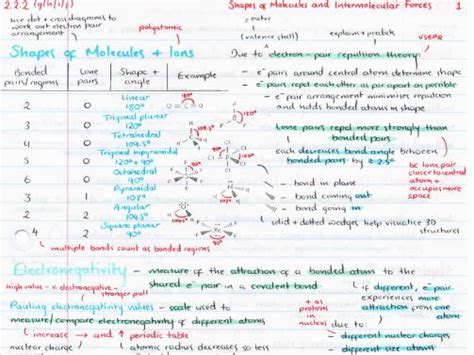 2.2.2 (g/h/i/j)
Shapes of Molecules and Intermolecular Forces 1
use dot + cross diagrams to
work out electron pair
arrangement
polyatomic
outer
(valence shell)
explain + predict
VSEPR
Shapes of Molecules + Ions
Due to electron-pair repulsion theory:
Bonded pairs/regions
Lone pairs
Shape + angle
Example
- e⁻ pairs around central atom determine shape
- e⁻ pairs repel each other as far apart as possible
- e⁻ pair arrangement minimises repulsion
and holds bonded atoms in shape
2 0 Linear 180°
3 0 Trigonal planar 120°
4 0 Tetrahedral 109.5°
5 0 Trigonal bipyramidal 120° + 90°
6 0 Octahedral 90°
3 1 Pyramidal 107°
2 2 Angular
4 2 Square planar 90°
Lone pairs repel more strongly than
bonded pairs
each decreases bond angle between
bonded pairs by ≈ 2.5°
bc lone pair
closer to central
atom +
occupies more
space
bond in plane
bond coming out
bond going in
solid + dotted wedges help visualise 3D
structures
multiple bonds count as bonded regions
Electronegativity - measure of the attraction of a bonded atom to the
shared e⁻ pair in a covalent bond
High value - v. electronegative - stronger pull
if different, e⁻ pair
experiences more
attraction from one
atom
Pauling electronegativity values - scale used to
measure/compare electronegativity of different atoms
+ as
protons in
nuclei
due to:
increase → and ↑ periodic table
nuclear charge
atomic radius decreases so less
different atoms
different nuclear charge